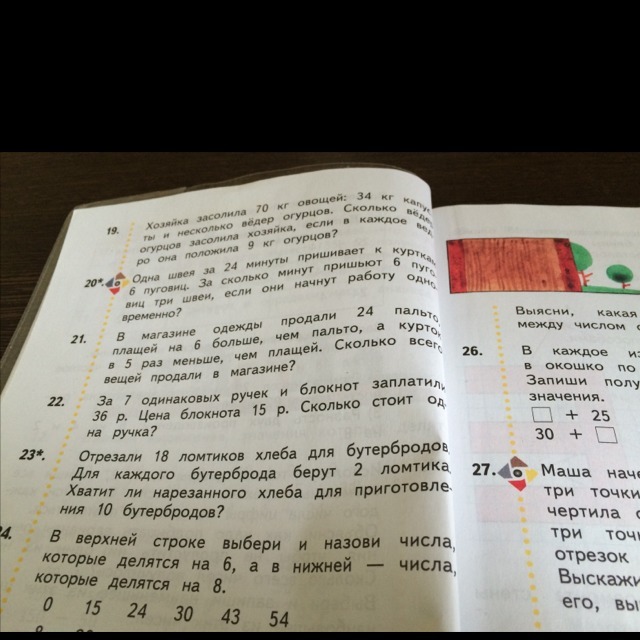 19. Хозяйка засолила 70 кг овощей: 34 кг капу
ты и несколько вёдер огурцов. Сколько вёдер
огурцов засолила хозяйка, если в каждое вед
ро она положила 9 кг огурцов?
20*. Одна швея за 24 минуты пришивает к курткам
6 пуговиц. За сколько минут пришьют 6 пуго
виц три швеи, если они начнут работу одно
временно?
21. В магазине одежды продали 24 пальто,
плащей на 6 больше, чем пальто, а курток
в 5 раз меньше, чем плащей. Сколько всего
вещей продали в магазине?
22. За 7 одинаковых ручек и блокнот заплатили
36 р. Цена блокнота 15 р. Сколько стоит од
на ручка?
23*. Отрезали 18 ломтиков хлеба для бутербродов.
Для каждого бутерброда берут 2 ломтика.
Хватит ли нарезанного хлеба для приготовле-
ния 10 бутербродов?
24. В верхней строке выбери и назови числа,
которые делятся на 6, а в нижней — числа,
которые делятся на 8.
0 15 24 30 43 54
Выясни, какая
между числом
26. В каждое из
в окошко по
Запиши полу
значения.
□ + 25
30 + □
27. Маша наче
три точки
чертила о
три точк
отрезок
Выскажи
его, вы